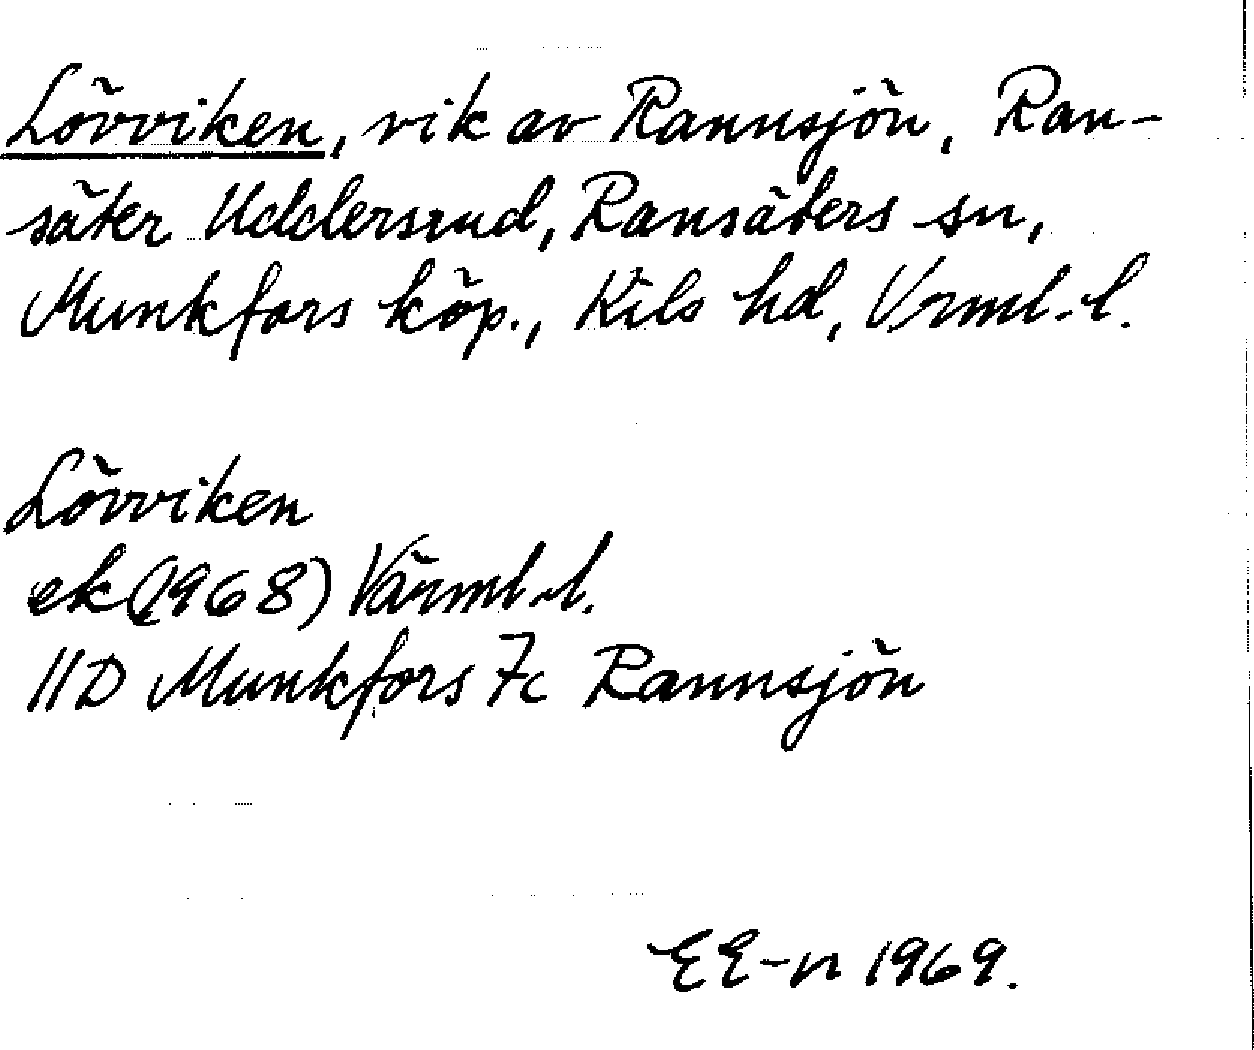 Lövviken, vik av Rannsjön, Ran-
säter Uddersrud, Ransäters sn,
Munkfors köp., Kils hd, Vrml. l.
Lövviken
ek (1968) Värml. l.
11D Munkfors 7c Rannsjön
EE-n 1969.